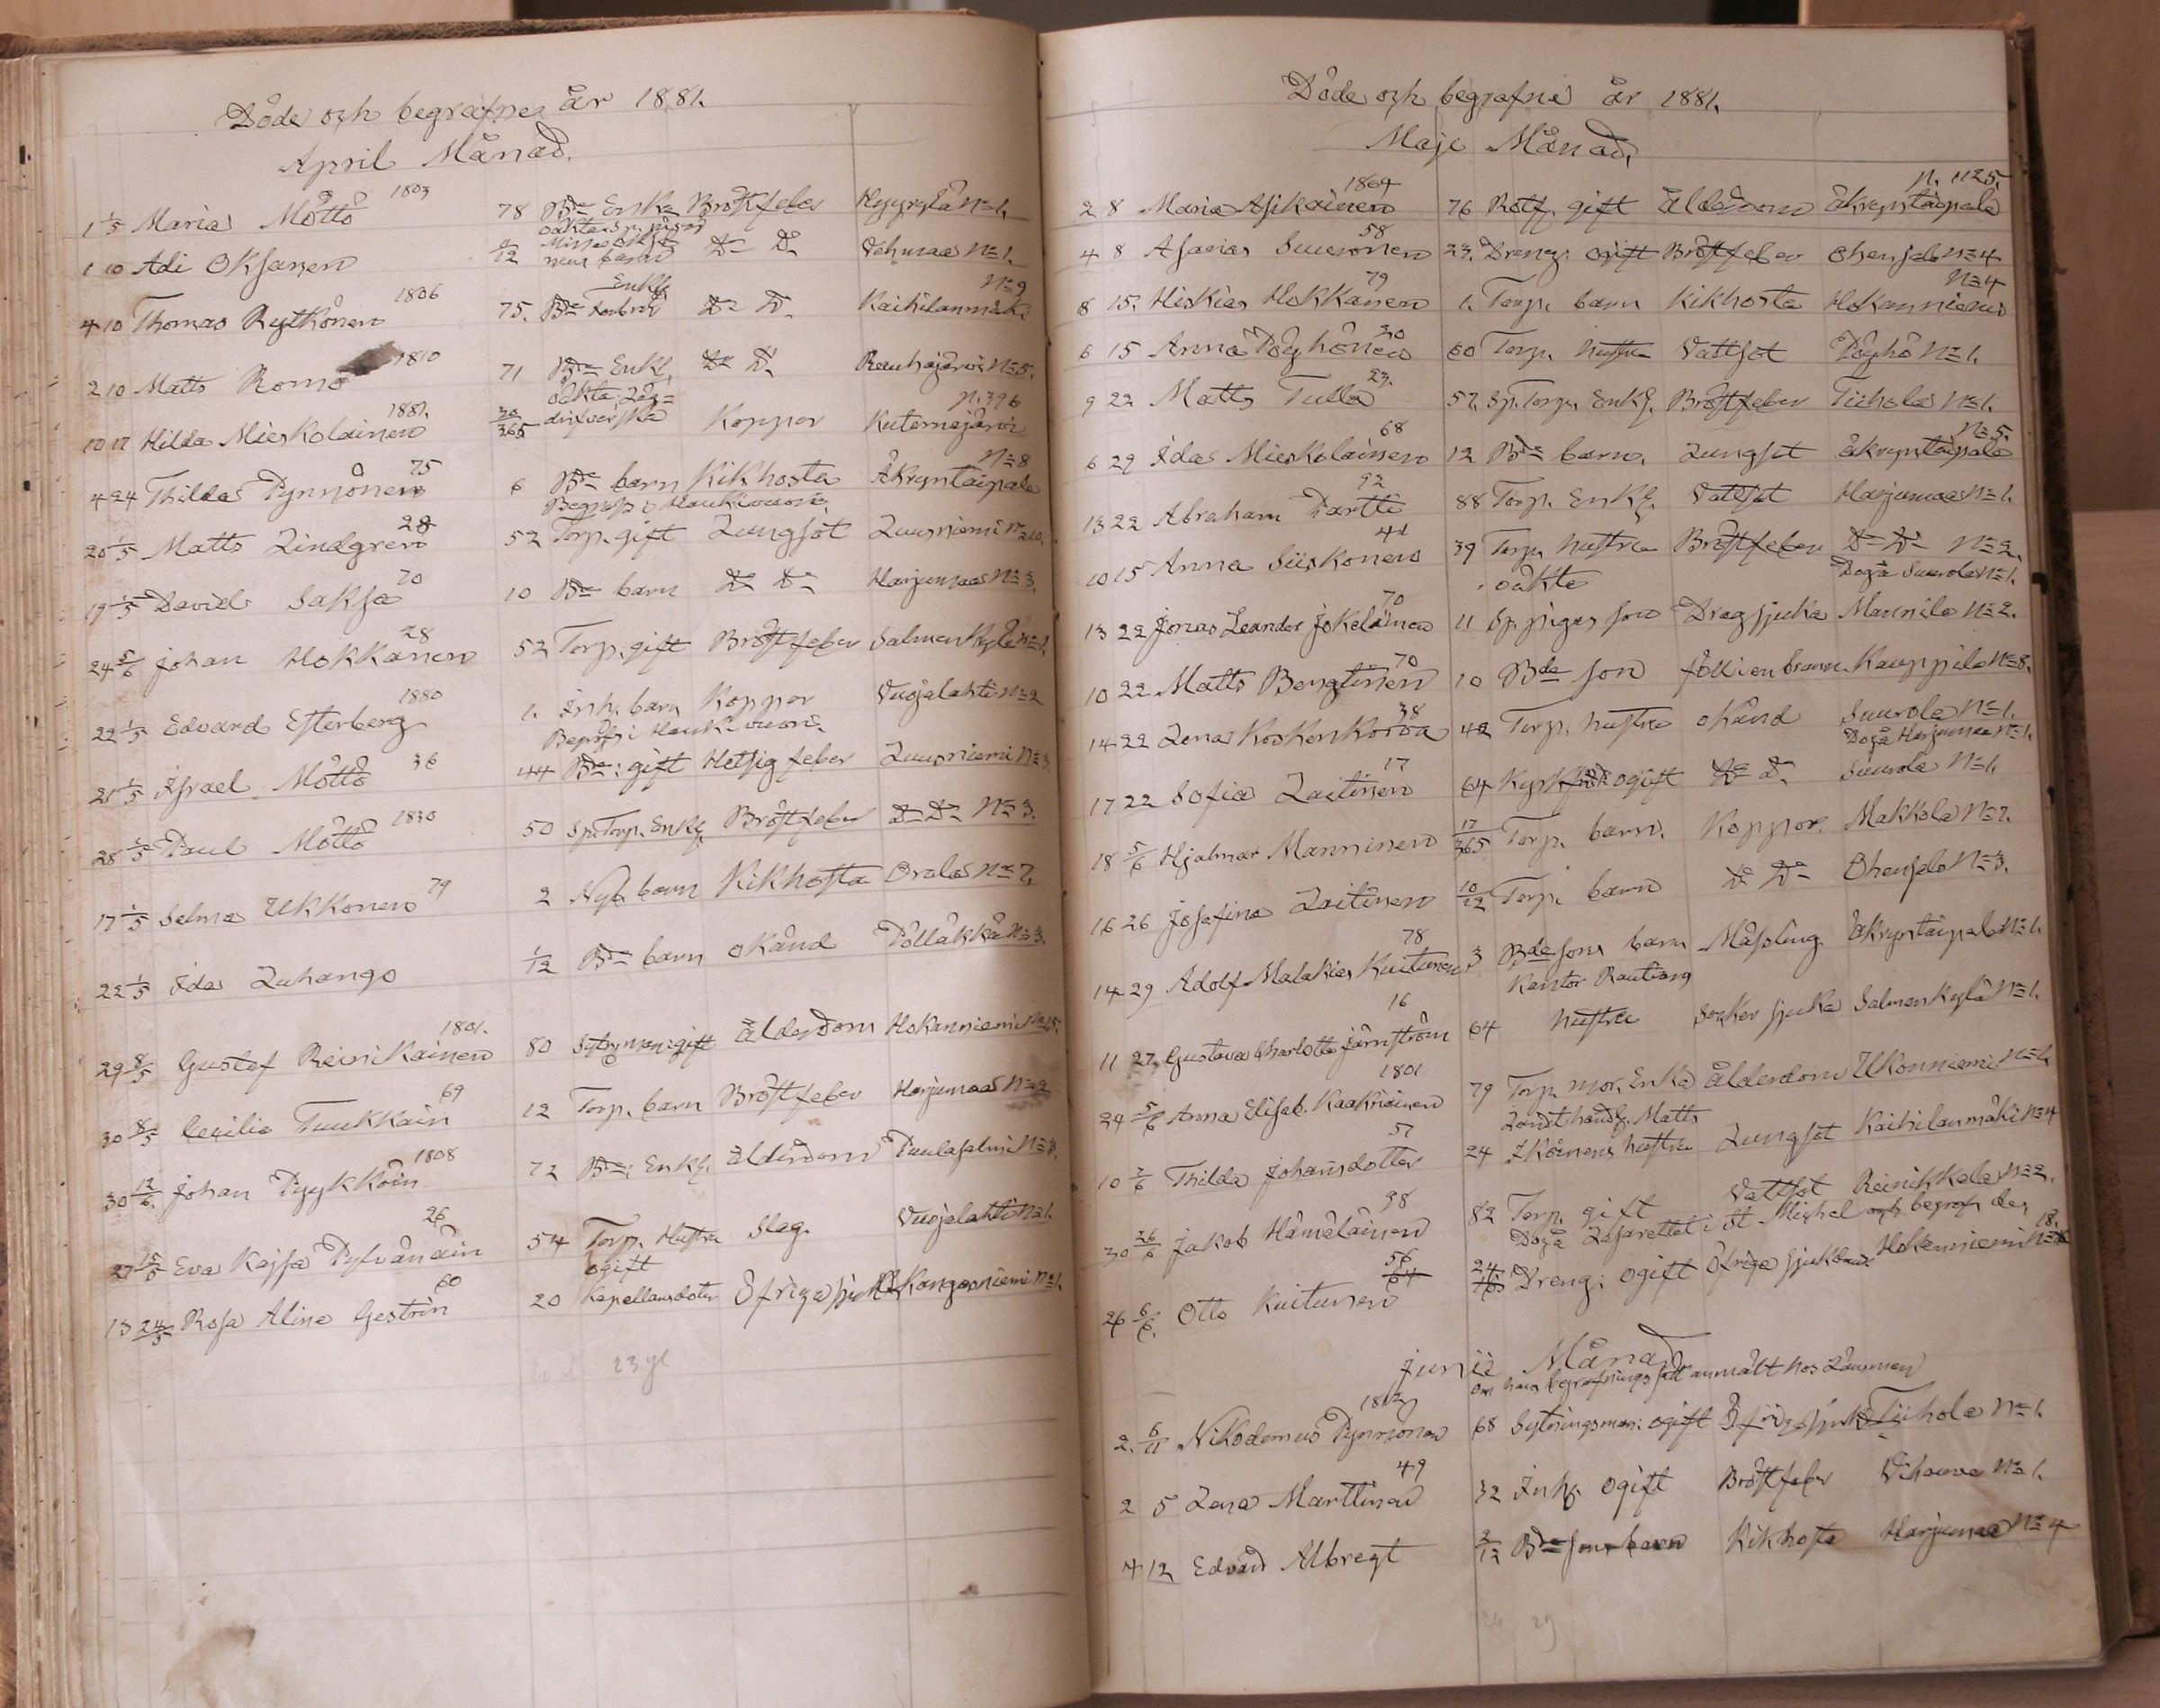 Döde och begrafne år 1881.
April Månad.
1 1/5 Maria Möttö 1803 78 Bde Enka Bröstfeber Hyyrylä No 1.
oäkta Sp. pigas
1 10 Adi Oksanen /12 barn Do Do Vehmaa No 1.
4 10 Thomas Rytkönen 1806 75. Bde Enkl. Do Do Kaihilanmäki No 9
2 10 Matts Romo 1810 71 Bde Enkl. Do Do Rauhajärvi No 5.
10 17 Hilda Mieskolainen 1881. 30/365 oäkta Koppor Kutemajärvi
4 24 Thilda Pynnönen 75 6 Bde barn Kikhosta Äkryntaipale No 8
Begrafs i Haukivuori.
20 1/5 Matts Lindgren 28 52 Torp. gift Lungsot Luusniemi No 10.
19 1/5 David Saksa 70 10 Bde barn Do Do Harjumaa No 3.
24 5/6 Johan Hokkanen 28 52 Torp. gift Bröstfeber Salmenkylä No 1.
22 1/5 Edvard Esterberg 1880 1. Inh. barn Koppor Vuojalahti No 2
Begrafs i Haukivuori.
21 1/5 Israel Möttö 36 44 Bde: gift Hetsig feber Luusniemi No 3.
28 1/5 Paul Möttö 1830 50 Sp. Torp. Enkl. Bröstfeber Do Do No 3.
17 1/5 Selma Ukkonen 79 2 Nyb. barn Kikhosta Orala No 7.
22 1/5 Ida Luhango 1/12 Bde barn okänd Pölläkkä No 3.
29 8/5 Gustaf Reinikainen 1801. 80 Sytn.man: gift Ålderdom Hokanniemi No 15.
30 8/5 Cecilia Tuukkain 69 12 Torp. barn Bröstfeber Harjumaa No 2
30 12/6. Johan Pyykköin 1808 72 Bde: Enkl. Ålderdom Puulasalmi No 8.
27 15/5 Eva Kajsa Pylvänäin 26 54 Torp. Hustru Slag. Vuojalahti No 1.
ogift
13 24/5 Rosa Alina Gestrin 60 20 Kapellansdotter Öfriga sjukd. Kangasniemi No 1.
23 gl
Döde och begrafne år 1881.
Maji Månad,
2 8 Maria Asikainen 1864 76 Rotf. gift Ålderdom Äkryntaipale
4 8 Asarias Suuronen 58 23. Dreng: ogift Bröstfeber Ohensalo No 4
8 15. Hiskias Hokkanen 79 1. Torp. barn Kikhosta Hokanniemi No 4
6 15 Anna Pöyhönen 20 60 Torp. hustru Vattsot Pöyhö No 1.
9 22 Matts Tulla 23. 57. Sp. Torp. Enkl. Bröstfeber Tiihola No 1.
6 29 Ida Mieskolainen 68 12 Bde barn. Lungsot Äkryntaipale No 5.
13 22 Abraham Partti 92 88 Torp. Enkl. Vattsot Harjumaa No 1.
10 15 Anna Siiskonen 41 39 Torp. hustru Bröstfeber Do Do No 2.
oäkta Dog å Suurola No 1.
13 22 Jonas Leander Jokelainen 70 11 Sp. pigas son Dragsjuka Mannila No 2.
10 22 Matts Bengtinen 70 10 Bde son Kauppila No 8.
14 22 Lena Koskenkorva 38 42 Torp. hustru okänd Suurola No 1.
Dog å Harjumaa No 1.
17 22 Sofia Laitinen 17 64 ogift Do Do Suurola No 1.
18 5/6 Hjalmar Manninen 17/365 Torp. barn. Koppor. Makkola No 7.
16 26 Josefina Laitinen 10/12 Torp. barn Do Do Ohensalo No 3.
14 29 Adolf Malakias Kuitunen 78 3 Bde sons barn Mässling Äkryntaipale No 1.
Kantor Rautiang
11 27. Gustava Charlotta Järnström 16 64 hustru Socker sjuka Salmenkylä No 1.
24 5/6 Anna Elisab. Kaakkainen 1801 79 Torp. mor. Enka Ålderdom Ukonniemi No 1.
Matts
10 7/6 Thilda Johansdotter 57 24 Ikäinens hustru Lungsot Kaihilanmäki No 4
30 26/6 Jakob Hämäläinen 98 82 Torp. gift Vattsot Reinikkala No 2.
Dog å Lasarettet i St Michel och begrofs der
26 6/6. Otto Kuitunen 56 24 Dreng: ogift Öfriga sjukdom. Hokanniemi No 18.
Junii Månad
Om hans begrafning satt anmält hos Länsman
2. 6/11 Nikodemus Pynnönen 1812 68 Sytningsman: ogift Öfriga sjukd. Tiihola No 1.
2 5 Lena Marttinen 49 32 Inh. ogift Bröstfeber Vihavua No 1.
4 12 Edvard Albregt 2/12 Bde sons barn Kikhosta Harjumaa No 4